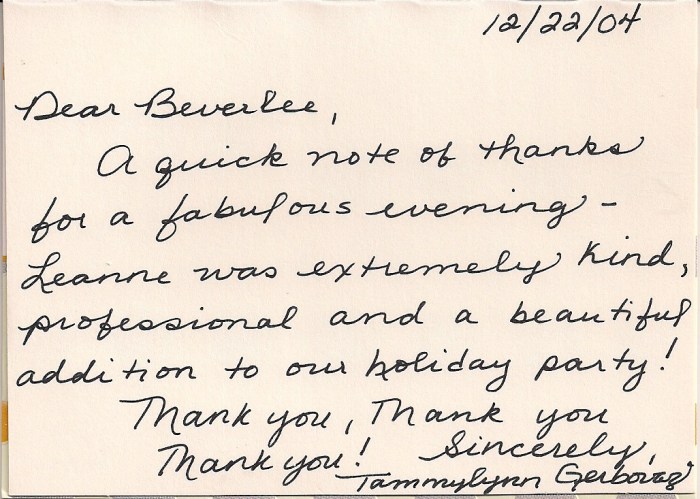 12/22/04
Dear Beverlee,
A quick note of thanks
for a fabulous evening -
Leanne was extremely kind,
professional and a beautiful
addition to our holiday party!
Thank you, Thank you
Thank you! Sincerely,
Tammylynn